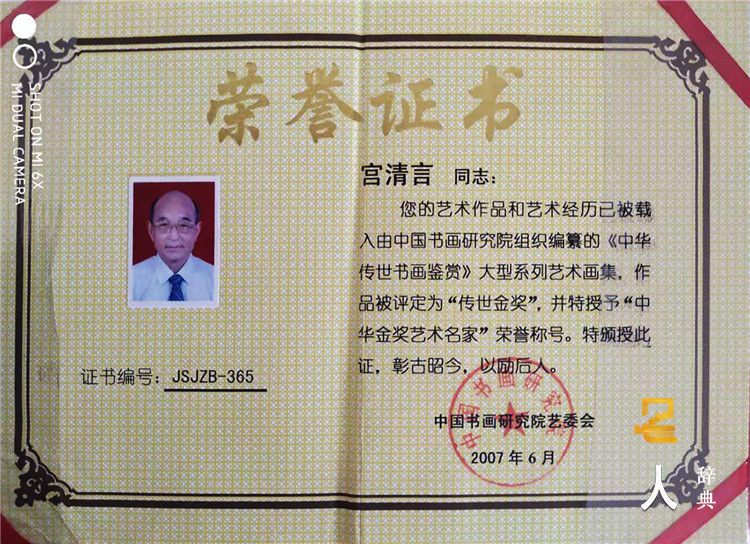 荣誉证书
宫清言 同志：
您的艺术作品和艺术经历已被载
入由中国书画研究院组织编纂的《中华
传世书画鉴赏》大型系列艺术画集，作
品被评定为“传世金奖”，并特授予“中
华金奖艺术名家”荣誉称号。特颁授此
证，彰古昭今，以励后人。
证书编号：JSJZB-365
中国书画研究院艺委会
2007年6月
中国书画研究院
SHOT ON MI 6X
MI DUAL CAMERA
人
辞典